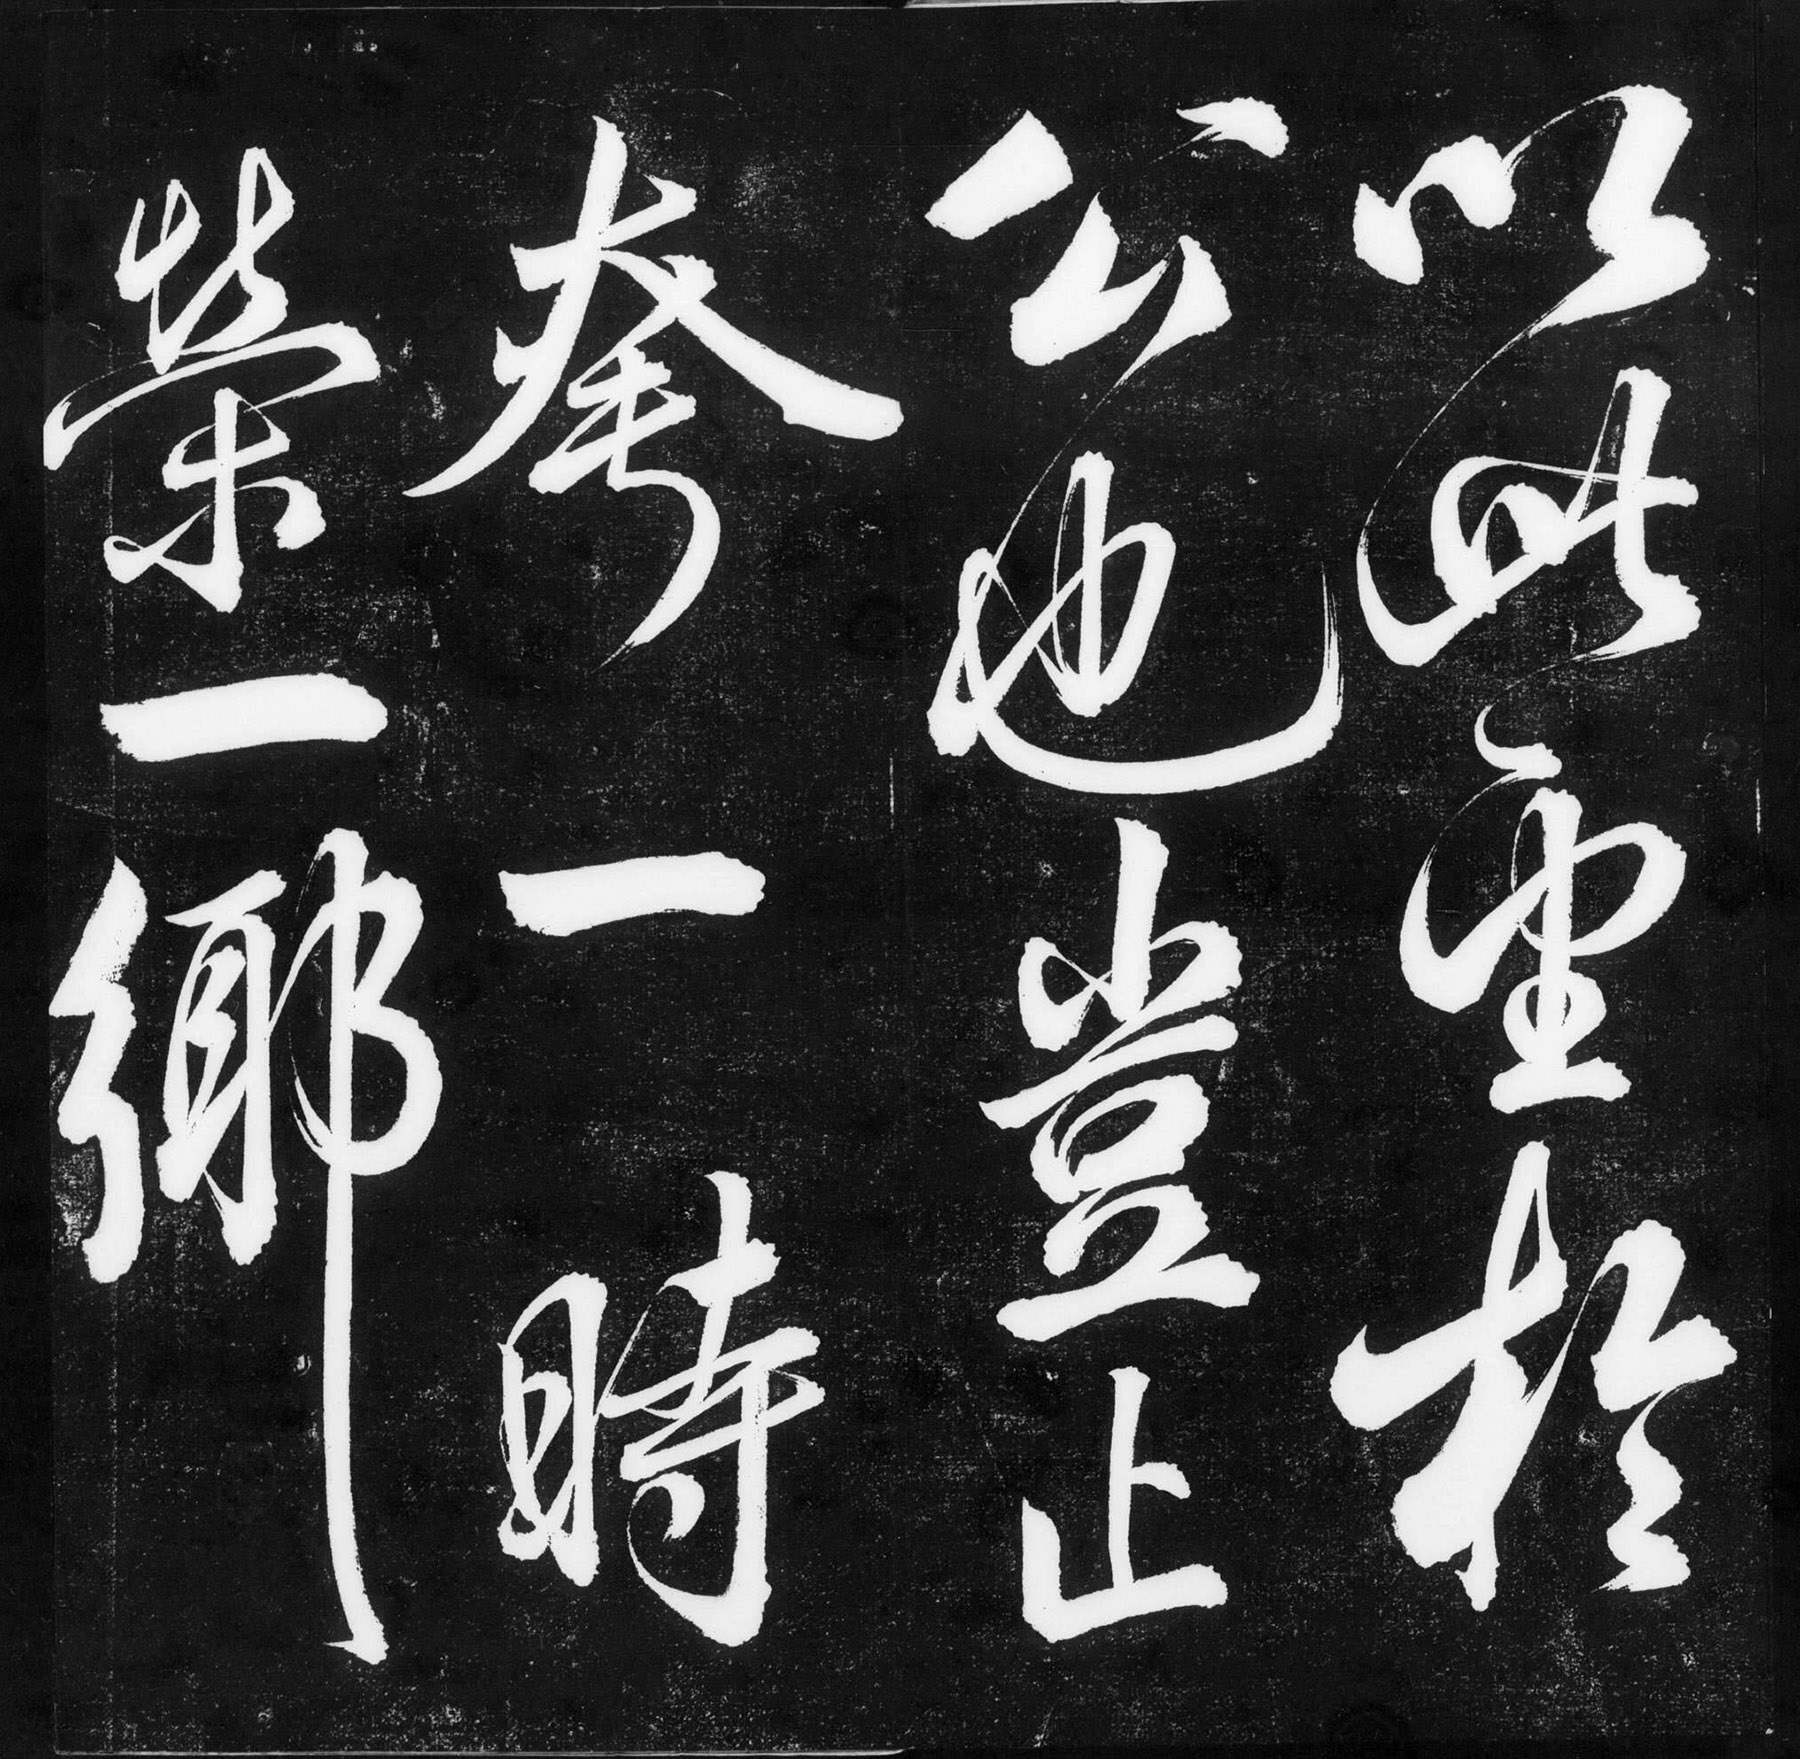 以此望於
公也豈止
夸一時
榮一鄉